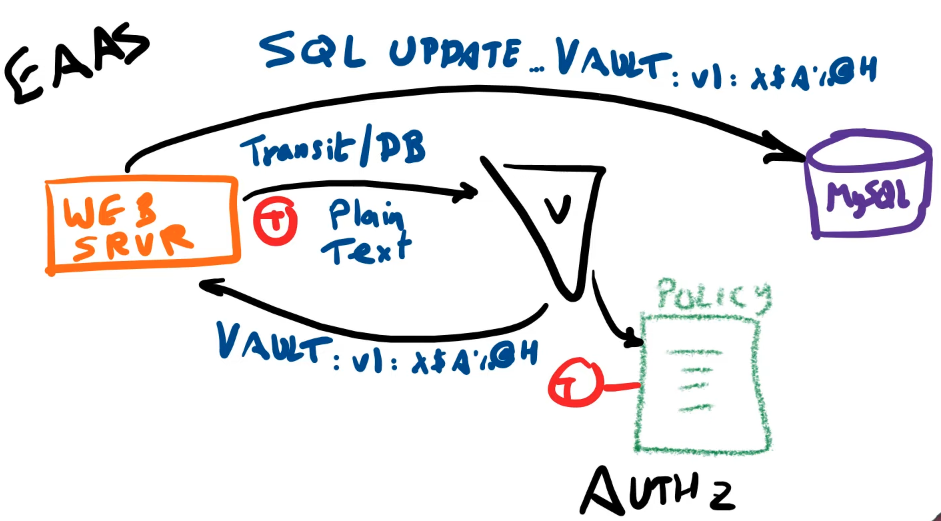 EAAS
SQL UPDATE... VAULT:v1:X$A%@H
Transit/DB
WEB
SRVR
T
Plain
Text
V
MySQL
POLICY
VAULT:v1:X$A%@H
T
AUTHZ